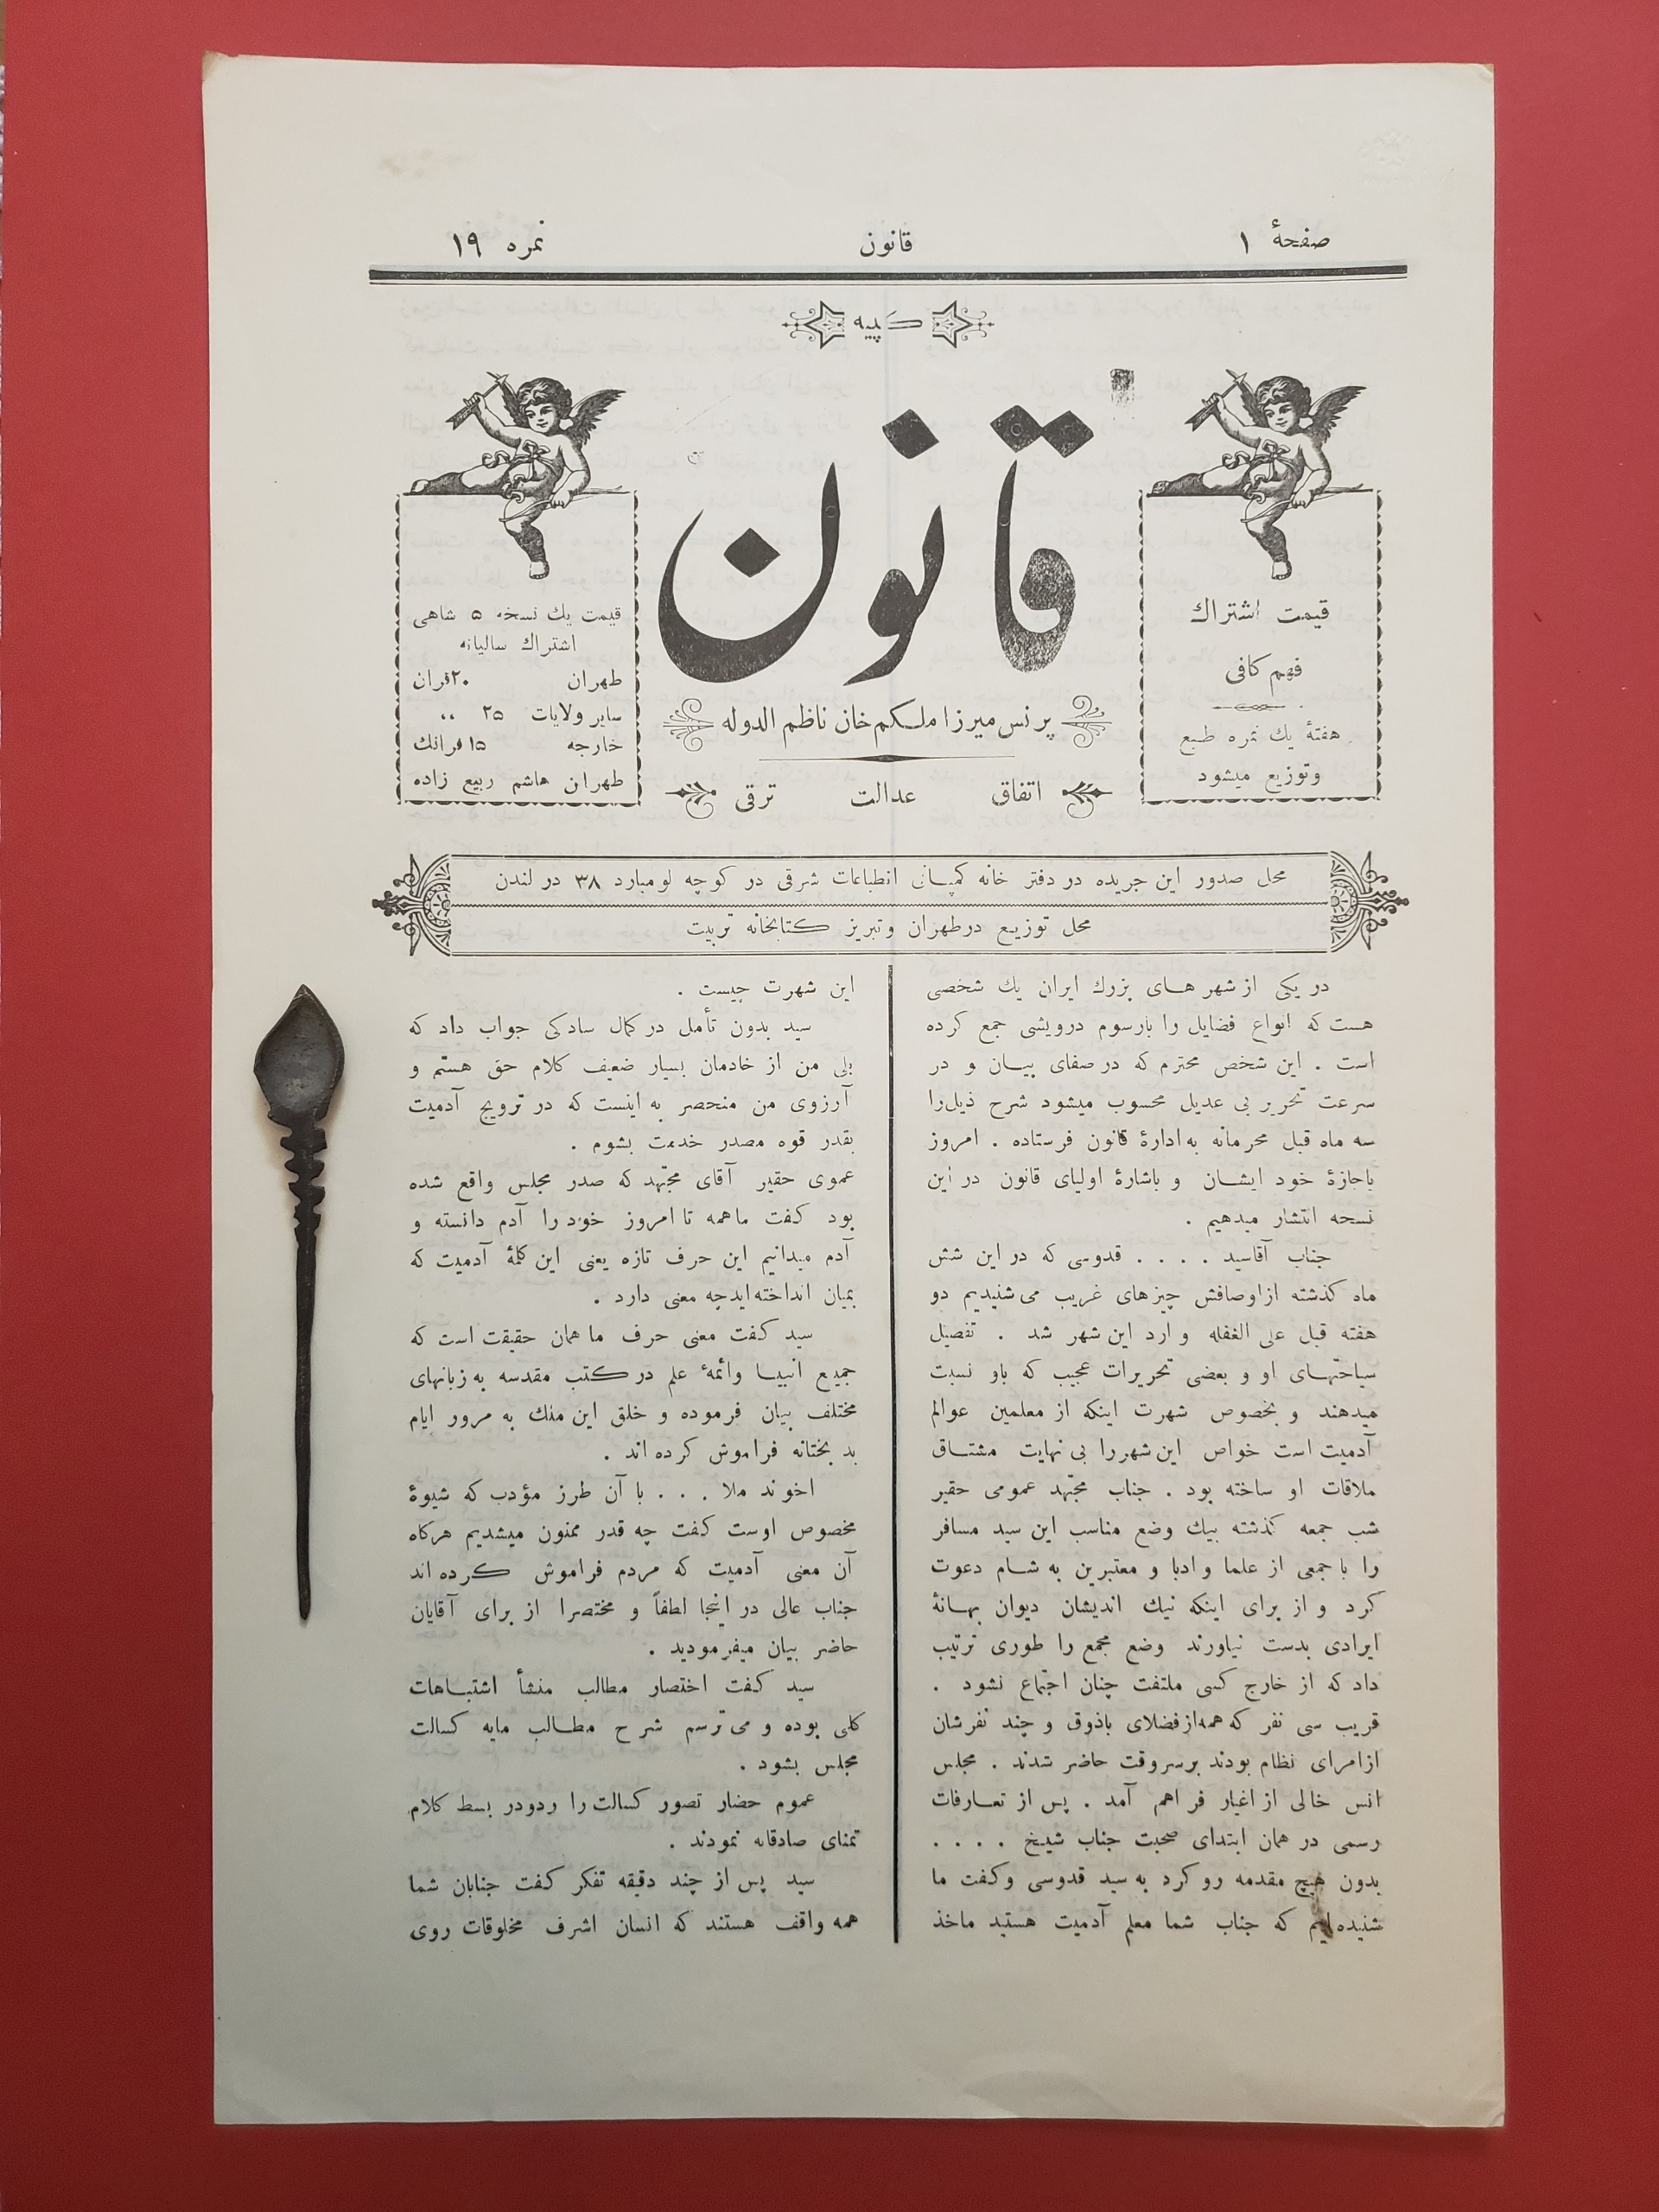 صفحهٔ ۱
قانون
نمره ۱۹
کپیه
قانون
پرنس میرزا ملکم خان ناظم الدوله
اتفاق عدالت ترقی
قیمت اشتراك
فهم کافی
هفتهٔ یك نمره طبع
وتوزیع میشود
قیمت یك نسخه ۵ شاهی
اشتراك سالیانه
طهران ۲۰قران
سایر ولایات ۲۵ ،،
خارجه ۱۵ فرانك
طهران هاشم ربیع زاده
محل صدور این جریده در دفتر خانه کمپانی انطباعات شرقی در کوچه لومبارد ۳۸ در لندن
محل توزیع در طهران وتبریز کتابخانه تربیت
در یکی از شهر های بزرك ایران یك شخصی
هست که انواع فضایل را بارسوم درویشی جمع کرده
است . این شخص محترم که در صفای بیان و در
سرعت تحریر بی عدیل محسوب میشود شرح ذیل‌را
سه ماه قبل محرمانه به ادارهٔ قانون فرستاده . امروز
باجازهٔ خود ایشان و باشارهٔ اولیای قانون در این
نسحه انتشار میدهیم .
جناب آقاسید . . . . قدوسی که در این شش
ماه کذشته ازاوصافش چیزهای غریب می‌شنیدیم دو
هفته قبل علی الغفله وارد این شهر شد . تفصیل
سیاحتهای او و بعضی تحریرات عجیب که باو نسبت
میدهند و بخصوص شهرت اینکه از معلمین عوالم
آدمیت است خواص این شهررا بی نهایت مشتاق
ملاقات او ساخته بود . جناب مجتهد عمومی حقیر
شب جمعه کذشته بیك وضع مناسب این سید مسافر
را با جمعی از علما و ادبا و معتبرین به شام دعوت
کرد و از برای اینکه نیك اندیشان دیوان بهانهٔ
ایرادی بدست نیاورند وضع مجمع را طوری ترتیب
داد که از خارج کسی ملتفت چنان اجتماع نشود .
قریب سی نفر که همه‌ازفضلای باذوق و چند نفرشان
ازامرای نظام بودند برسروقت حاضر شدند . مجلس
انس خالی از اغیار فراهم آمد . پس از تعارفات
رسمی در همان ابتدای صحبت جناب شیخ . . . .
بدون هیچ مقدمه رو کرد به سید قدوسی وکفت ما
شنیده‌ایم که جناب شما معلم آدمیت هستید ماخذ
این شهرت چیست .
سید بدون تأمل در کمال سادکی جواب داد که
بلی من از خادمان بسیار ضعیف کلام حق هستم و
آرزوی من منحصر به اینست که در ترویج آدمیت
بقدر قوه مصدر خدمت بشوم .
عموی حقیر آقای مجتهد که صدر مجلس واقع شده
بود کفت ماهمه تا امروز خود را آدم دانسته و
آدم میدانیم این حرف تازه یعنی این کلمهٔ آدمیت که
بمیان انداخته‌ایدچه معنی دارد .
سید کفت معنی حرف ما همان حقیقت است که
جمیع انبیا وائمهٔ علم در کتب مقدسه به زبانهای
مختلف بیان فرموده و خلق این ملك به مرور ایام
بد بختانه فراموش کرده اند .
اخوند ملا . . . با آن طرز مؤدب که شیوهٔ
مخصوص اوست کفت چه قدر ممنون میشدیم هرکاه
آن معنی آدمیت که مردم فراموش کرده اند
جناب عالی در اینجا لطفاً و مختصرا از برای آقایان
حاضر بیان میفرمودید .
سید کفت اختصار مطالب منشأ اشتباهات
کلی بوده و می ترسم شرح مطالب مایه کسالت
مجلس بشود .
عموم حضار تصور کسالت را ردودر بسط کلام
تمنای صادقانه نمودند .
سید پس از چند دقیقه تفکر کفت جنابان شما
همه واقف هستند که انسان اشرف مخلوقات روی